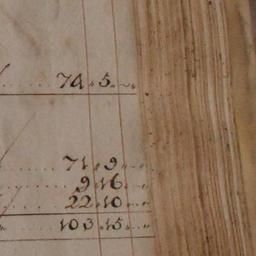 74 „ 5 „ „
71 „ 9 „ „
9 „ 16 „ „
22 „ 10 „ „
103 „ 15 „ „